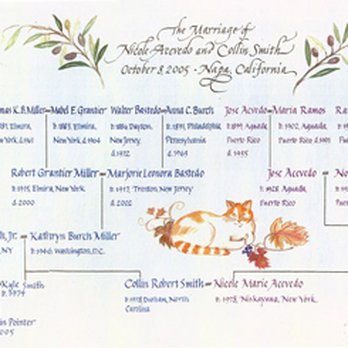 The Marriage of
Nicole Acevedo and Collin Smith
October 8, 2005 · Napa, California
mas K.B. Miller — Mabel E. Grantier
Walter Bastedo — Anna C. Burch
Jose Acevedo — Maria Ramos
Ra
b. 1883, Elmira,
New York
b. 1884, Dayton,
New Jersey
d. 1972
Pennsylvania
d. 1964
b. 1891, Aguada,
Puerto Rico
d. 1955
b. 1902, Aguada,
Puerto Rico
Puerto
Robert Grantier Miller — Marjorie Leonora Bastedo
Jose Acevedo — No
b. 1915, Elmira, New York
d. 2000
b. 1917, Trenton, New Jersey
d. 2002
b. 1928, Aguada,
Puerto Rico
Puerto
h, Jr. — Kathryn Burch Miller
NY
b. 1946, Washington, D.C.
Kyle Smith
b. 1974
Collin Robert Smith — Nicole Marie Acevedo
b. 1978 Durham, North
Carolina
b. 1978, Niskayuna, New York
in Pointer
2005